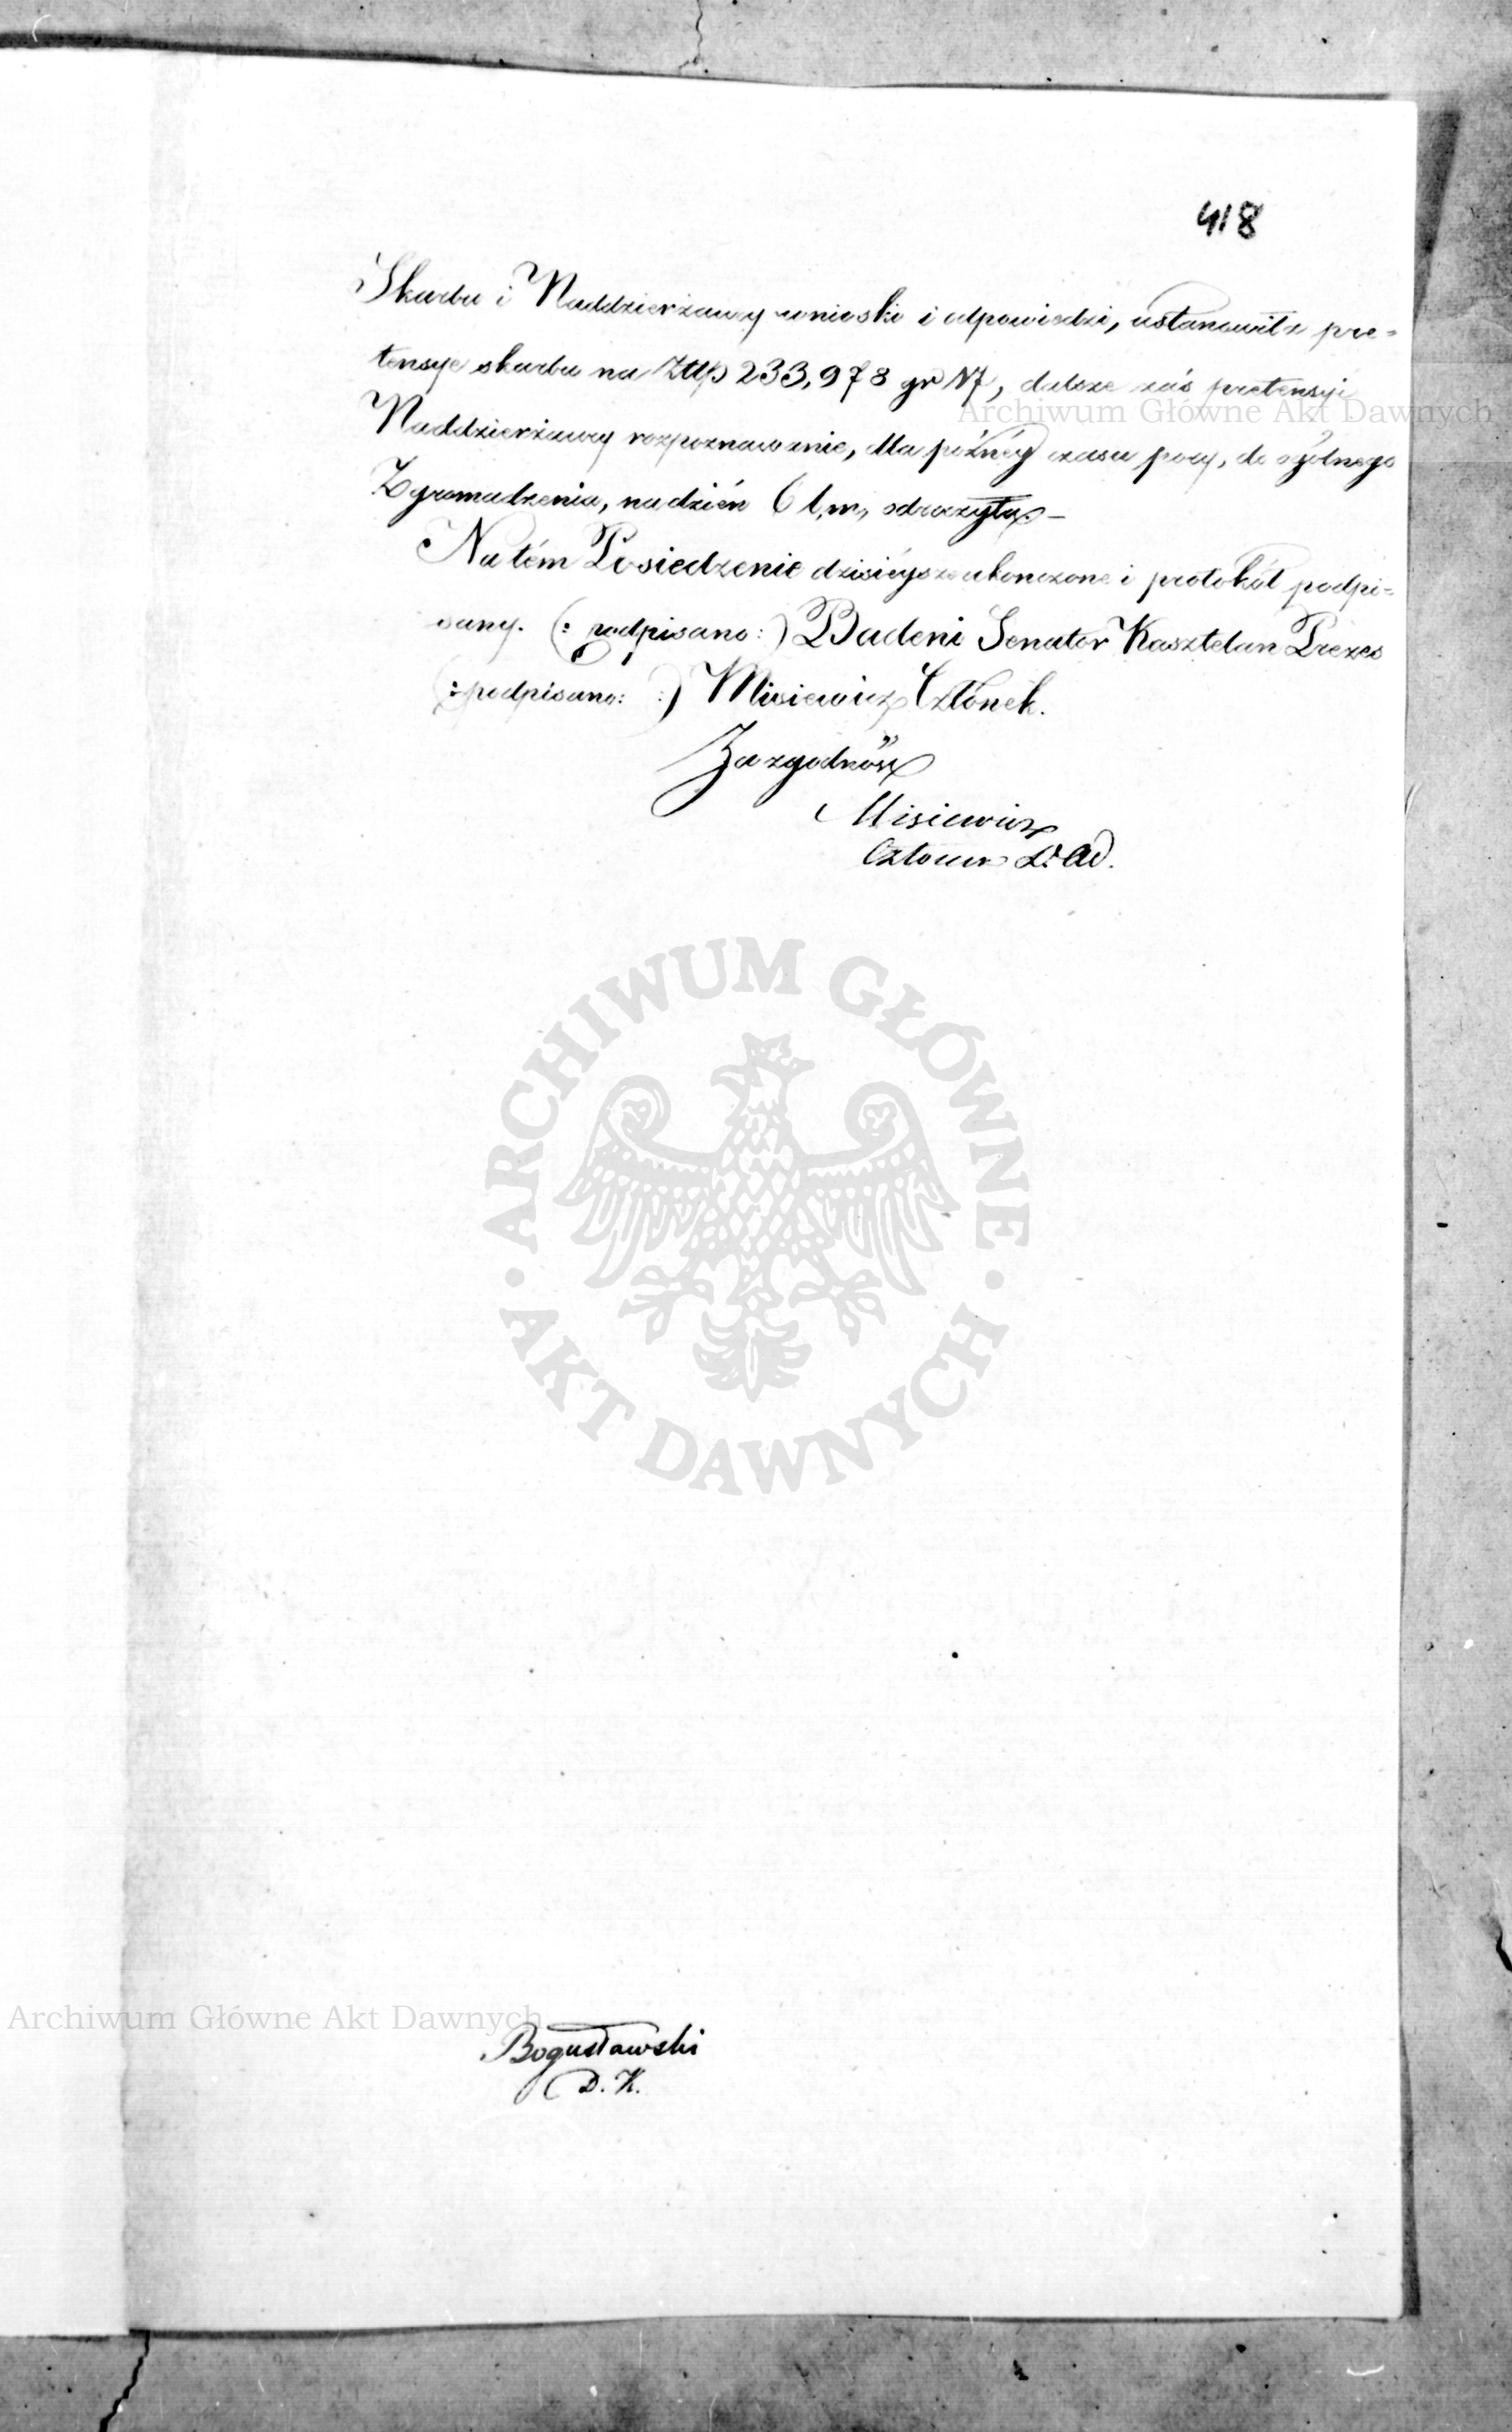 418
Skarbu i Naddzierżawy wnioski i odpowiedzi, ustanowiła pre=
tensye skarbu na Złłp 233,978 gr 17, dalsze zaś pretensyi
Archiwum Główne Akt Dawnych
Naddzierżawy rozpoznawanie, dla późnéy czasu pory, do ogólnego
Zgromadzenia, na dzień 6 t.m., odroczyła. —
Na tém Posiedzenie dzisiéysze ukonczone i protokół podpi=
sany. (: podpisano :) Badeni Senator Kasztelan Prezes
(: podpisano: :) Misiewicz Członek.
Za zgodność
Misiewicz
Członek
ARCHIWUM GŁÓWNE
· AKT DAWNYCH ·
Archiwum Główne Akt Dawnych
Bogusławski
D. K.